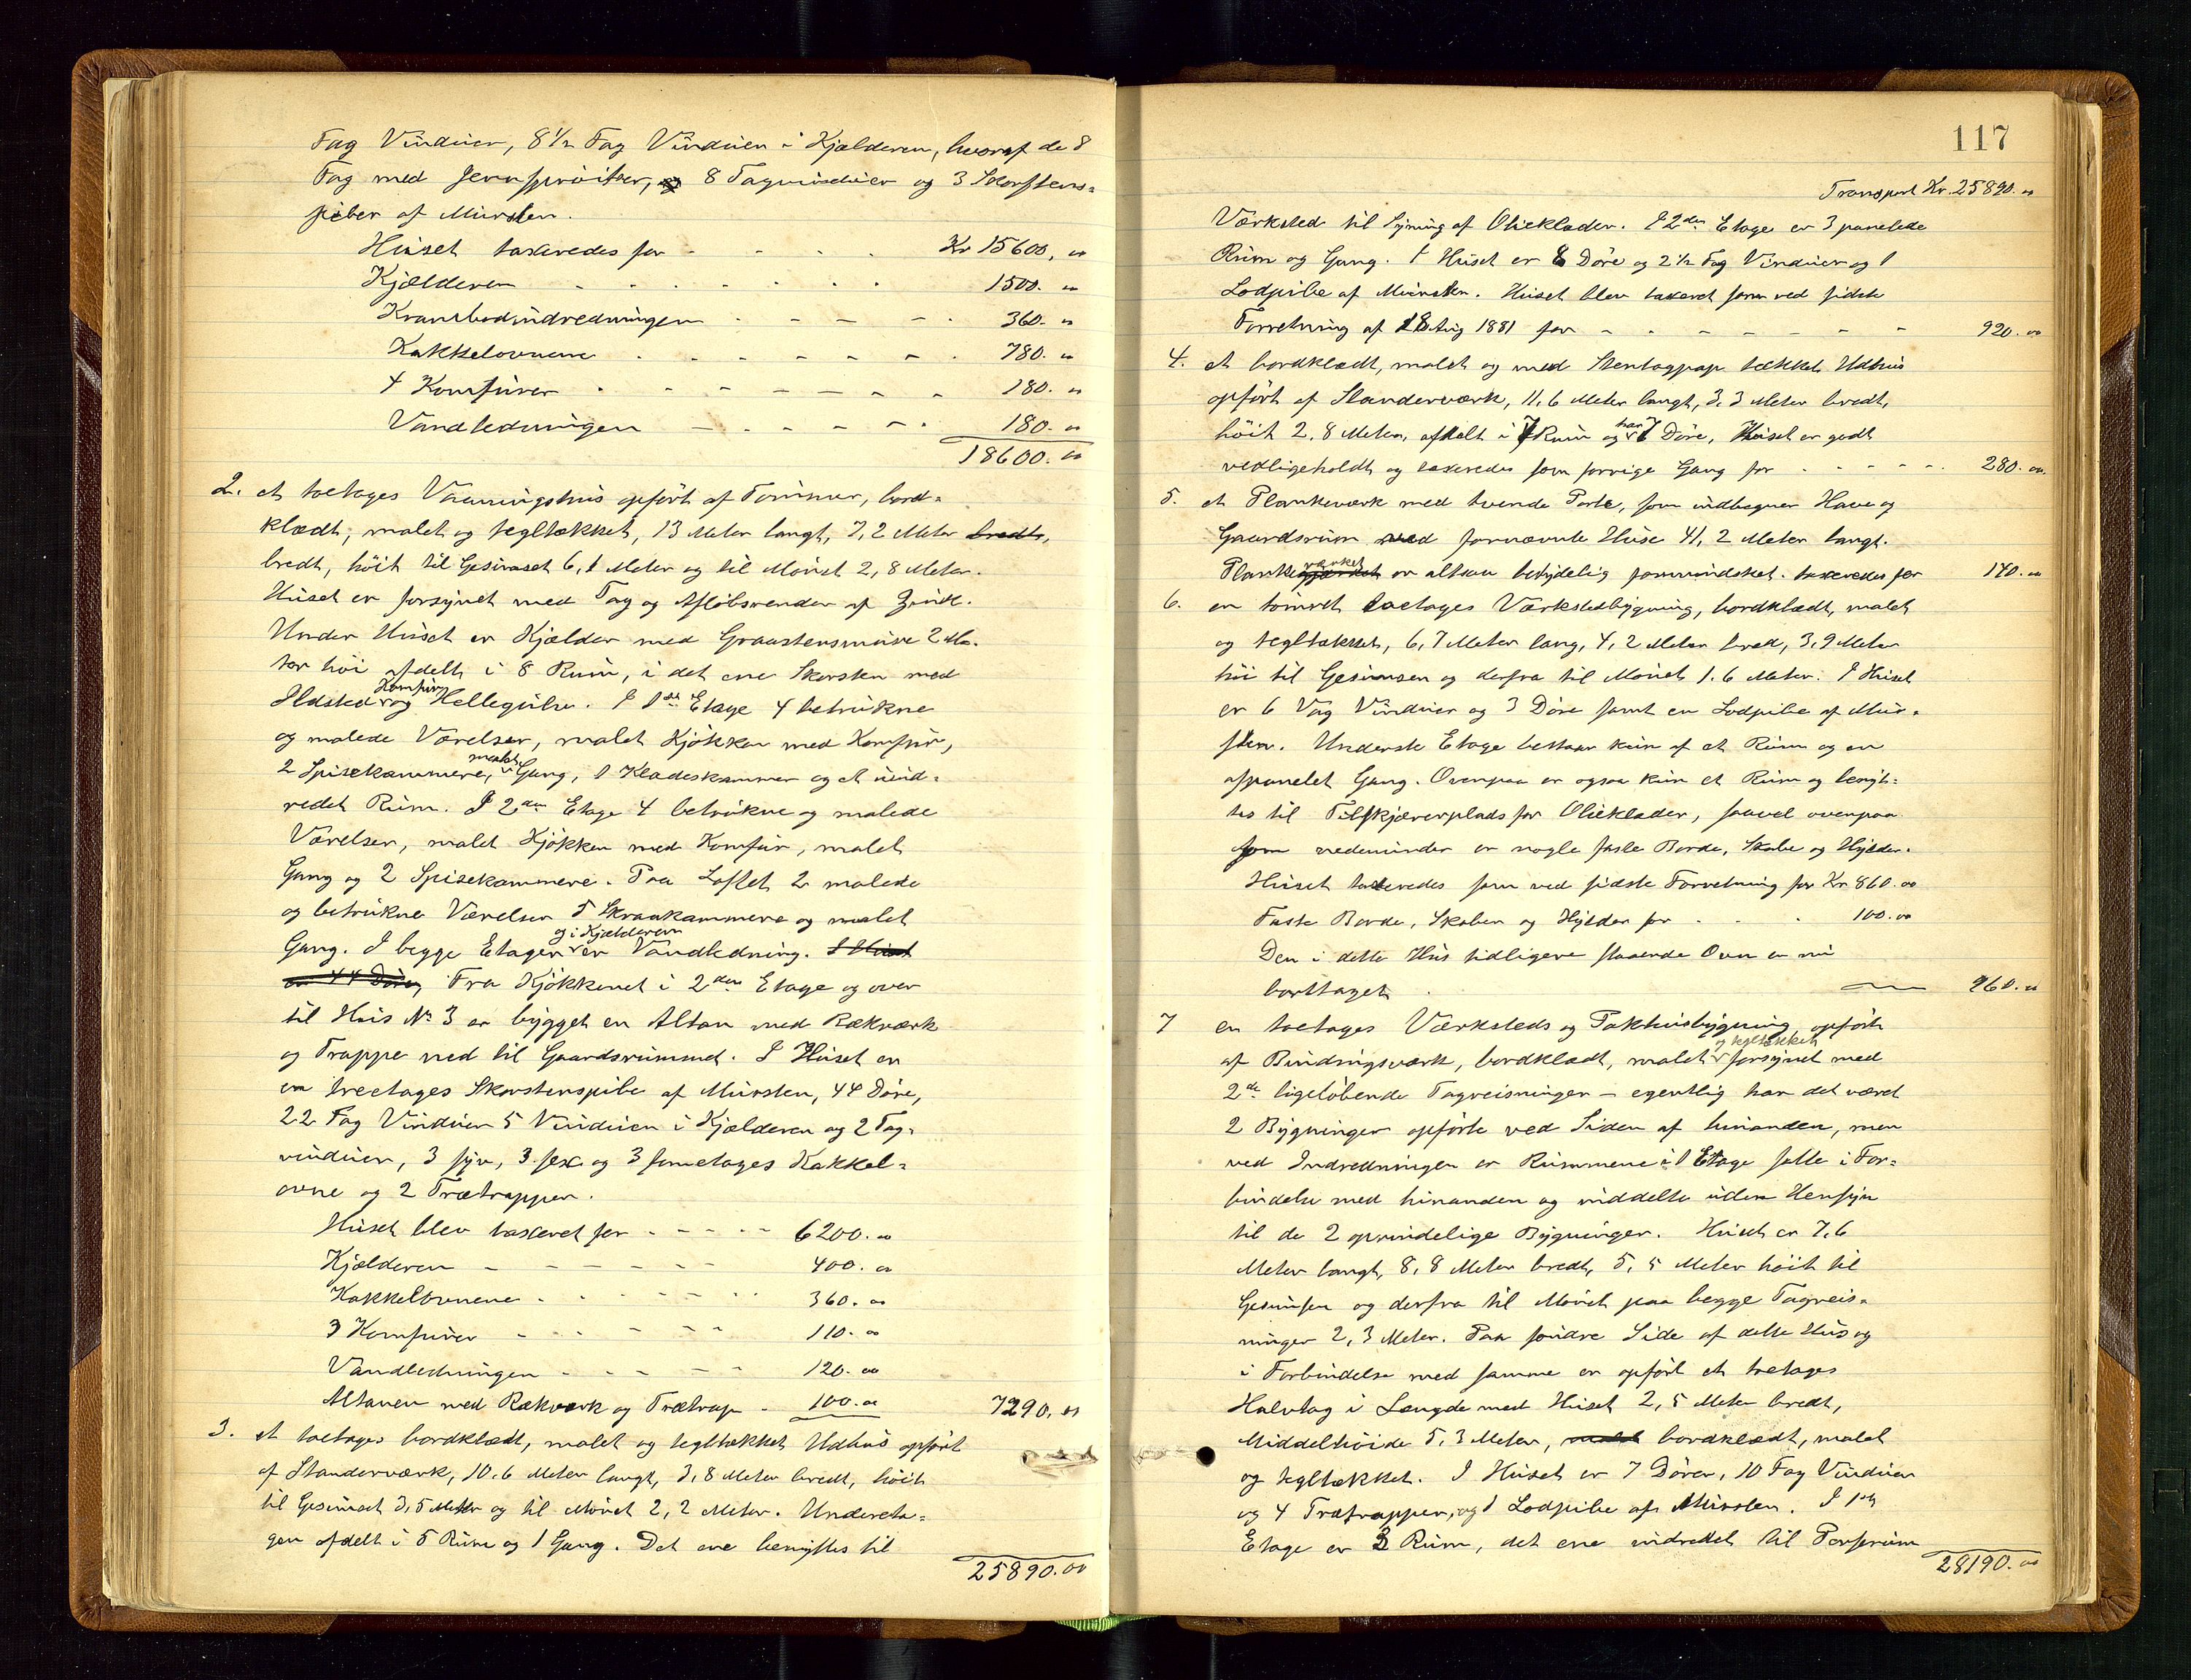 Fag Vinduer, 8 1/2 Fag Vinduer i Kjælderen, hvoraf de 8
Fag med Jernsproiter, og 8 Tagvinduer og 3 Skorstens=
piber af Mursten.
Huset taxeredes for - - - Kr 15600,00
Kjælderen - - - 1500.00
Krambodindredningen - - - 360.00
Kakkelovnene - - - 780.00
4 Komfurer - - - 180.00
Vandledningen - - - 180.00
18600.00
2. et toetages Vaaningshus opført af Tømmer, bord=
klædt, malet og tegltækket, 13 Meter langt, 7,2 Meter bredt,
bredt, høit til Gesimset 6,1 Meter og til Mønet 2,8 Meter.
Huset er forsynet med Tag og Afløbsrender af Zink.
Under Huset er Kjælder med Graastensmure 2 Me-
ter høi afdelt i 8 Rum, i det ene Skorsten med
Ildsted Komfur og Hellegulv. I 1ste Etage 4 betrukne
og malede Værelser, malet Kjøkken med Komfur,
2 Spisekammere, malet Gang, 1 Klædeskammer og et uind=
redet Rum. I 2den Etage 4 betrukne og malede
Værelser, malet Kjøkken med Komfur, malet
Gang og 2 Spisekammere. Paa Loftet 2 malede
og betrukne Værelser 5 Skraakammere og malet
Gang. I begge Etager og i Kjælderen er Vandledning. I Huset
er 44 Døre, Fra Kjøkkenet i 2den Etage og over
til Hus No 3 er bygget en Altan med Rækværk
og Trappe ned til Gaardsrummet. I Huset er
en treetages Skorstenspibe af Mursten, 44 Døre,
22 Fag Vinduer 5 Vinduer i Kjælderen og 2 Tag-
vinduer, 3 syv, 3 sex og 3 femetages Kakkel=
ovne og 2 Trætrapper.
Huset blev taxeret for - - - 6200.00
Kjælderen - - - 400.00
Kakkelovnene - - - 360.00
3 Komfurer - - - 110.00
Vandledningen - - - 120.00
Altanen med Rækværk og Trætrap - 100.00 7290,00
3. et toetages bordklædt, malet og tegltækket Udhus opført
af Standerværk, 10,6 Meter langt, 3,8 Meter bredt, høit
til Gesimset 3,5 Meter og til Mønet 2,2 Meter. Undereta=
gen afdelt i 5 Rum og 1 Gang. Det ene benyttes til
25890.00
117
Transport Kr. 25890.00
Værksted til Syning af Olieklæder. I 2den Etage er 3 panelede
Rum og Gang. I Huset er 8 Døre og 2 1/2 Fag Vinduer og 1
Lodpibe af Mursten. Huset blev taxeret som ved sidste
Forretning af 18 Aug 1881 for - - - 920.00
4. et bordklædt, malet og med Stentagpap tækket Udhus
opført af Standerværk, 11,6 Meter langt, 3,3 Meter bredt,
høit 2,8 Meter, afdelt i 7 Rum og har 7 Døre, Huset er godt
vedligeholdt og taxeredes som forrige Gang for - - - 280.00
5. et Plankeværk med tvende Porte, som indhegner Have og
Gaardsrum ved fornævnte Huse 41,2 Meter langt.
Plankeværket er altsaa betydelig formindsket. taxeredes for 140.00
6. en tømret toetages Værkstedbygning, bordklædt, malet
og tegltækket, 6,7 Meter lang, 4,2 Meter bred, 3,9 Meter
høi til Gesimsen og derfra til Mønet 1.6 Meter. I Huset
er 6 Fag Vinduer og 3 Døre samt en Lodpibe af Mur-
sten. Underste Etage bestaar kun af et Rum og en
afpanelet Gang. Ovenpaa er ogsaa kun et Rum og benyt=
tes til Tilskjærerplads for Olieklæder, saavel ovenpaa
som nedenunder er nogle faste Borde, Skabe og Hylder.
Huset taxeredes som ved sidste Forretning for Kr. 860.00
Faste Borde, Skaber og Hylder for - - - 100.00
Den i dette Hus tidligere staaende Ovn er nu
borttaget 960.00
7 en toetages Værksteds og Pakhusbygning, opført
af Bindingsværk, bordklædt, malet og tegltækket forsynet med
2de ligeløbende Tagreisninger – egentlig har det været
2 Bygninger opførte ved Siden af hinanden, men
ved Indredningen er Rummene i 1 Etage satte i For=
bindelse med hinanden og inddelte uden Hensyn
til de 2 oprindelige Bygninger. Huset er 7,6
Meter langt, 8,8 Meter bredt, 5,5 Meter høit til
Gesimsen og derfra til Mønet paa begge Tagreis-
ninger 2,3 Meter. Paa søndre Side af dette Hus og
i Forbindelse med samme er opført et toetages
Halvtag i Længde med Huset 2,5 Meter bredt,
Middelhøide 5,3 Meter, malet bordklædt, malet
og tegltækket. I Huset er 7 Døre, 10 Fag Vinduer
og 4 Trætrapper, og 1 Lodpibe af Mursten. I 1ste
Etage er 3 Rum, det ene indredet til
28190.00